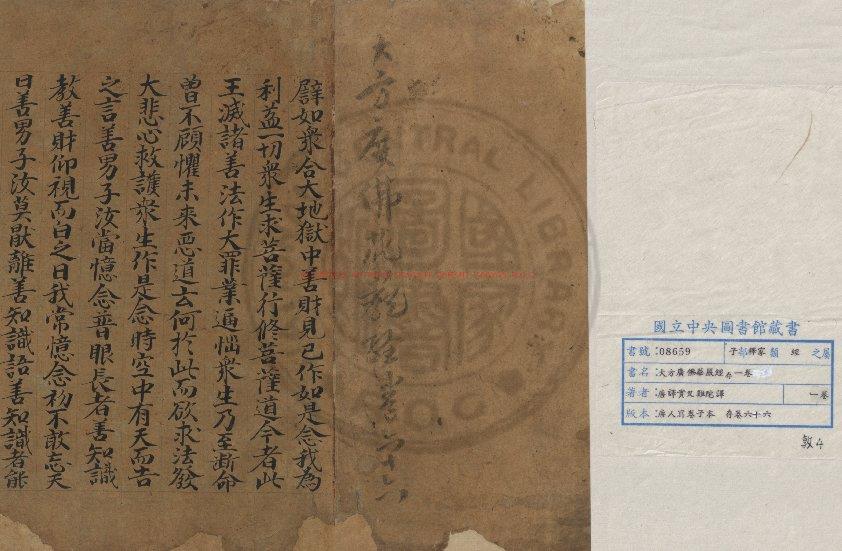 國立中央圖書館藏書
書號:08659 子部釋家類 經 之屬
書名:大方廣佛華嚴經存一卷
著者:唐釋實叉難陀譯 一卷
版本:唐人寫卷子本 存卷六十六
敦4
大方廣佛花嚴經卷六十六
譬如衆合大地獄中善財見已作如是念我為
利益一切衆生求菩薩行修菩薩道今者此
王滅諸善法作大罪業逼惱衆生乃至斷命
曾不顧懼未來惡道云何於此而欲求法發
大悲心救護衆生作是念時空中有天而告
之言善男子汝當憶念普眼長者善知識
教善財仰視而白之曰我常憶念初不敢忘天
曰善男子汝莫猒離善知識語善知識者能